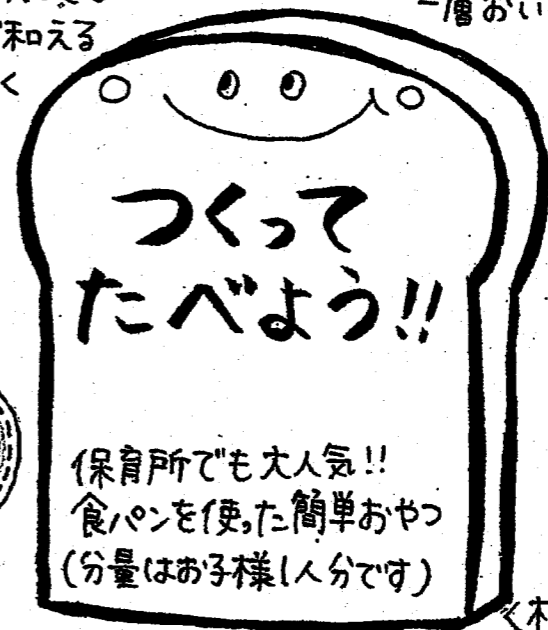 和える
く
一層おい
つくって
たべよう!!
保育所でも大人気!!
食パンを使った簡単おやつ
(分量はお子様1人分です)